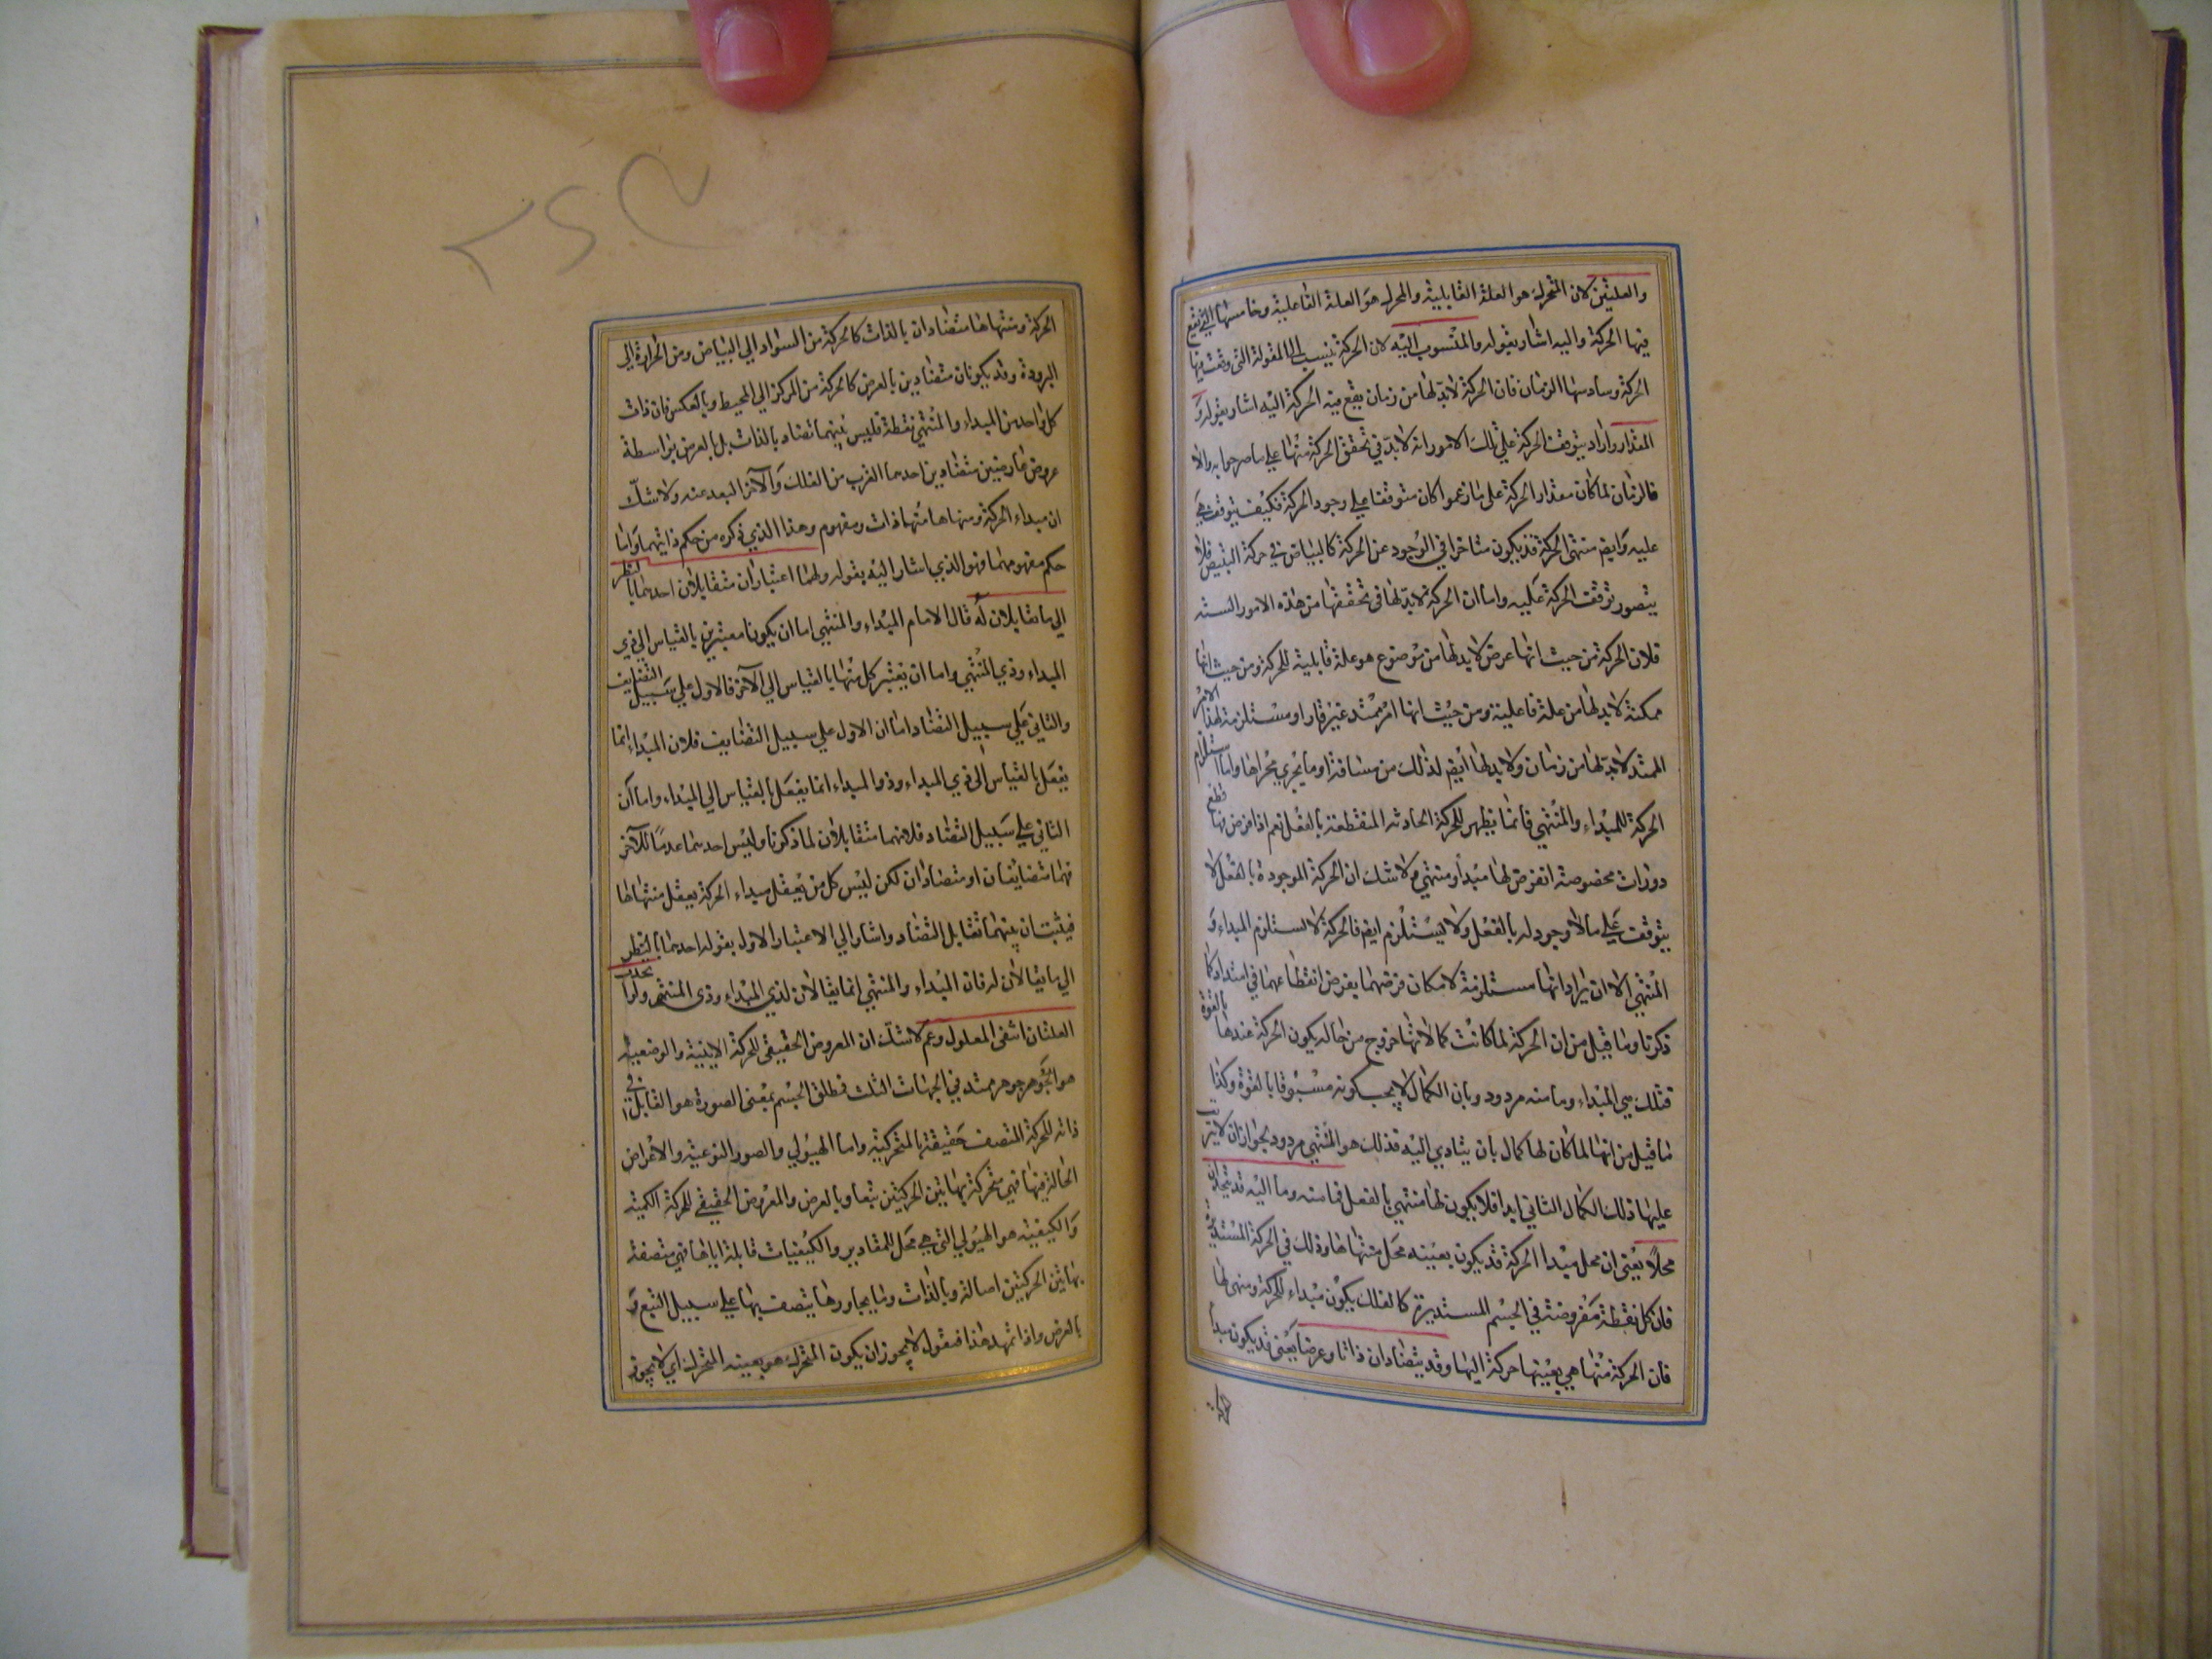 والعلتين لان المتحرك هو العلة القابلية والمحرك هو العلة الفاعلية وخامسها التي تقع
فيها الحركة واليه اشار بقوله والمنسوب اليه لان الحركة تنسب الى المقولة التي وقعت فيها
الحركة وسادسها الزمان فان الحركة لابد لها من زمان يقع فيه الحركة اليه اشار بقوله و
المقدار واراد بتوقف الحركة على تلك الامور انه لابد في تحقق الحركة منها على ما صرحوا به والا
فالزمان لما كان مقدار الحركة على ما زعموا كان متوقفا على وجود الحركة فكيف يتوقف هي
عليه وايضا منتهى الحركة قد يكون متاخرا في الوجود عن الحركة كالبياض في حركة التبيض فلا
يتصور توقف الحركة عليه واما ان الحركة لابد لها في تحققها من هذه الامور الستة
فلان الحركة من حيث انها عرض لابد لها من موضوع هو علة قابلية للحركة ومن حيث انها
ممكنة لابد لها من علة فاعلية ومن حيث انها امر ممتد غير قار او مستلزمة لهذا الامر
الممتد لابد لها من زمان ولابد لها ايضا لذلك من مسافة او ما يجري مجراها واما استلزام
الحركة للمبداء والمنتهي فانما يظهر للحركة الحادثة المنقطعة بالفعل نعم اذا فرض لها قطع
دورات مخصوصة انفرض لها مبدأ ومنتهي ولا شك ان الحركة الموجودة بالفعل لا
يتوقف على ما لا وجود له بالفعل ولا يستلزم ايضا فالحركة لا تستلزم المبداء و
المنتهي الا ان يراد انها مستلزمة لامكان فرضهما بفرض انقطاعهما في امتداد كما
ذكرنا وما قيل من ان الحركة لما كانت كمالا انها خروج من حالة يكون الحركة عندها بالقوة
فتلك هي المبداء وما منه مردود وبان الكمال لا يجب كونه مسبوقا بالقوة وكذا
ما قيل من انها لما كان لها كمال بان يتادي اليه فذلك هو المنتهي مردود بجواز ان لا يترتب
عليها ذلك الكمال الثاني ابدا فلا يكون لها منتهي بالفعل فما منه وما اليه قد يتحدان
محلا يعني ان محل مبدا الحركة قد يكون بعينه محل منتهاها وذلك في الحركة المستديرة
فان كل نقطة مفروضة في الجسم المستديرة كالفلك يكون مبداء للحركة ومنتهى لها
فان الحركة منها هي بعينها حركة اليها وقد يتضادان ذاتا وعرضا يعني قد يكون مبدأ
الحركة ومنتهاها متضادان بالذات كالحركة من السواد الي البياض ومن الحرارة الي
البرودة وقد يكونان متضادين بالعرض كالحركة من المركز الي المحيط وبالعكس فان ذات
كل واحد من المبداء والمنتهي نقطة فليس بينهما تضاد بالذات بل بالعرض بواسطة
عروض عارضين متضادين احدهما القرب من الفلك والآخر البعد عنه ولا شك
ان مبداء الحركة ومنتهاها لهما ذات ومفهوم وهذا الذي ذكره من حكم ذاتيهما واما
حكم مفهومهما فهو الذي اشار اليه بقوله ولهما اعتباران متقابلان احدهما بالنظر
الي ما تقابلان له قال الامام المبداء والمنتهي اما ان يكونا معتبرين بالقياس الي ذي
المبداء وذي المنتهي واما ان يعتبر كل منهما بالقياس الي الآخر فالاول علي سبيل التضايف
والثاني علي سبيل التضاد اما ان الاول علي سبيل التضايف فلان المبداء انما
يعقل بالقياس الى ذي المبداء وذو المبداء انما يعقل بالقياس الي المبداء واما ان
الثاني علي سبيل التضاد فلانهما متقابلان لما ذكرنا وليس احدهما عدما للآخر
فهما متضايفان او متضادان لكن ليس كل من يعقل مبداء الحركة يعقل منتهاها
فيثبت ان بينهما تقابل التضاد واشار الي الاعتبار الاول بقوله احدهما بالنظر
الي ما يقالان له فان المبداء والمنتهي انما يقالان لذي المبداء وذى المنتهي ولو اتحدت
العلتان انتفى المعلول وعم لا شك ان المعروض الحقيقي للحركة الاينية والوضعية
هو الجوهر جوهر ممتد في الجهات الثلث فمطلق الجسم بمعنى الصورة هو القابل في
ذاته للحركة المتصف حقيقة بالمتحركية واما الهيولي والصور النوعية والاعراض
الحالة فيها فهي متحركة بهاتين الحركتين تبعا وبالعرض والمعروض الحقيقي للحركة الكمية
والكيفية هو الهيولي التي هي محل للمقادير والكيفيات قابلة اياها فهي متصفة
بهاتين الحركتين اصالة وبالذات وما يجاورها يتصف بها علي سبيل التبع و
بالعرض واذا تمهد هذا فنقول لا يجوز ان يكون المتحرك هو بعينه المحرك اي لا يجوز